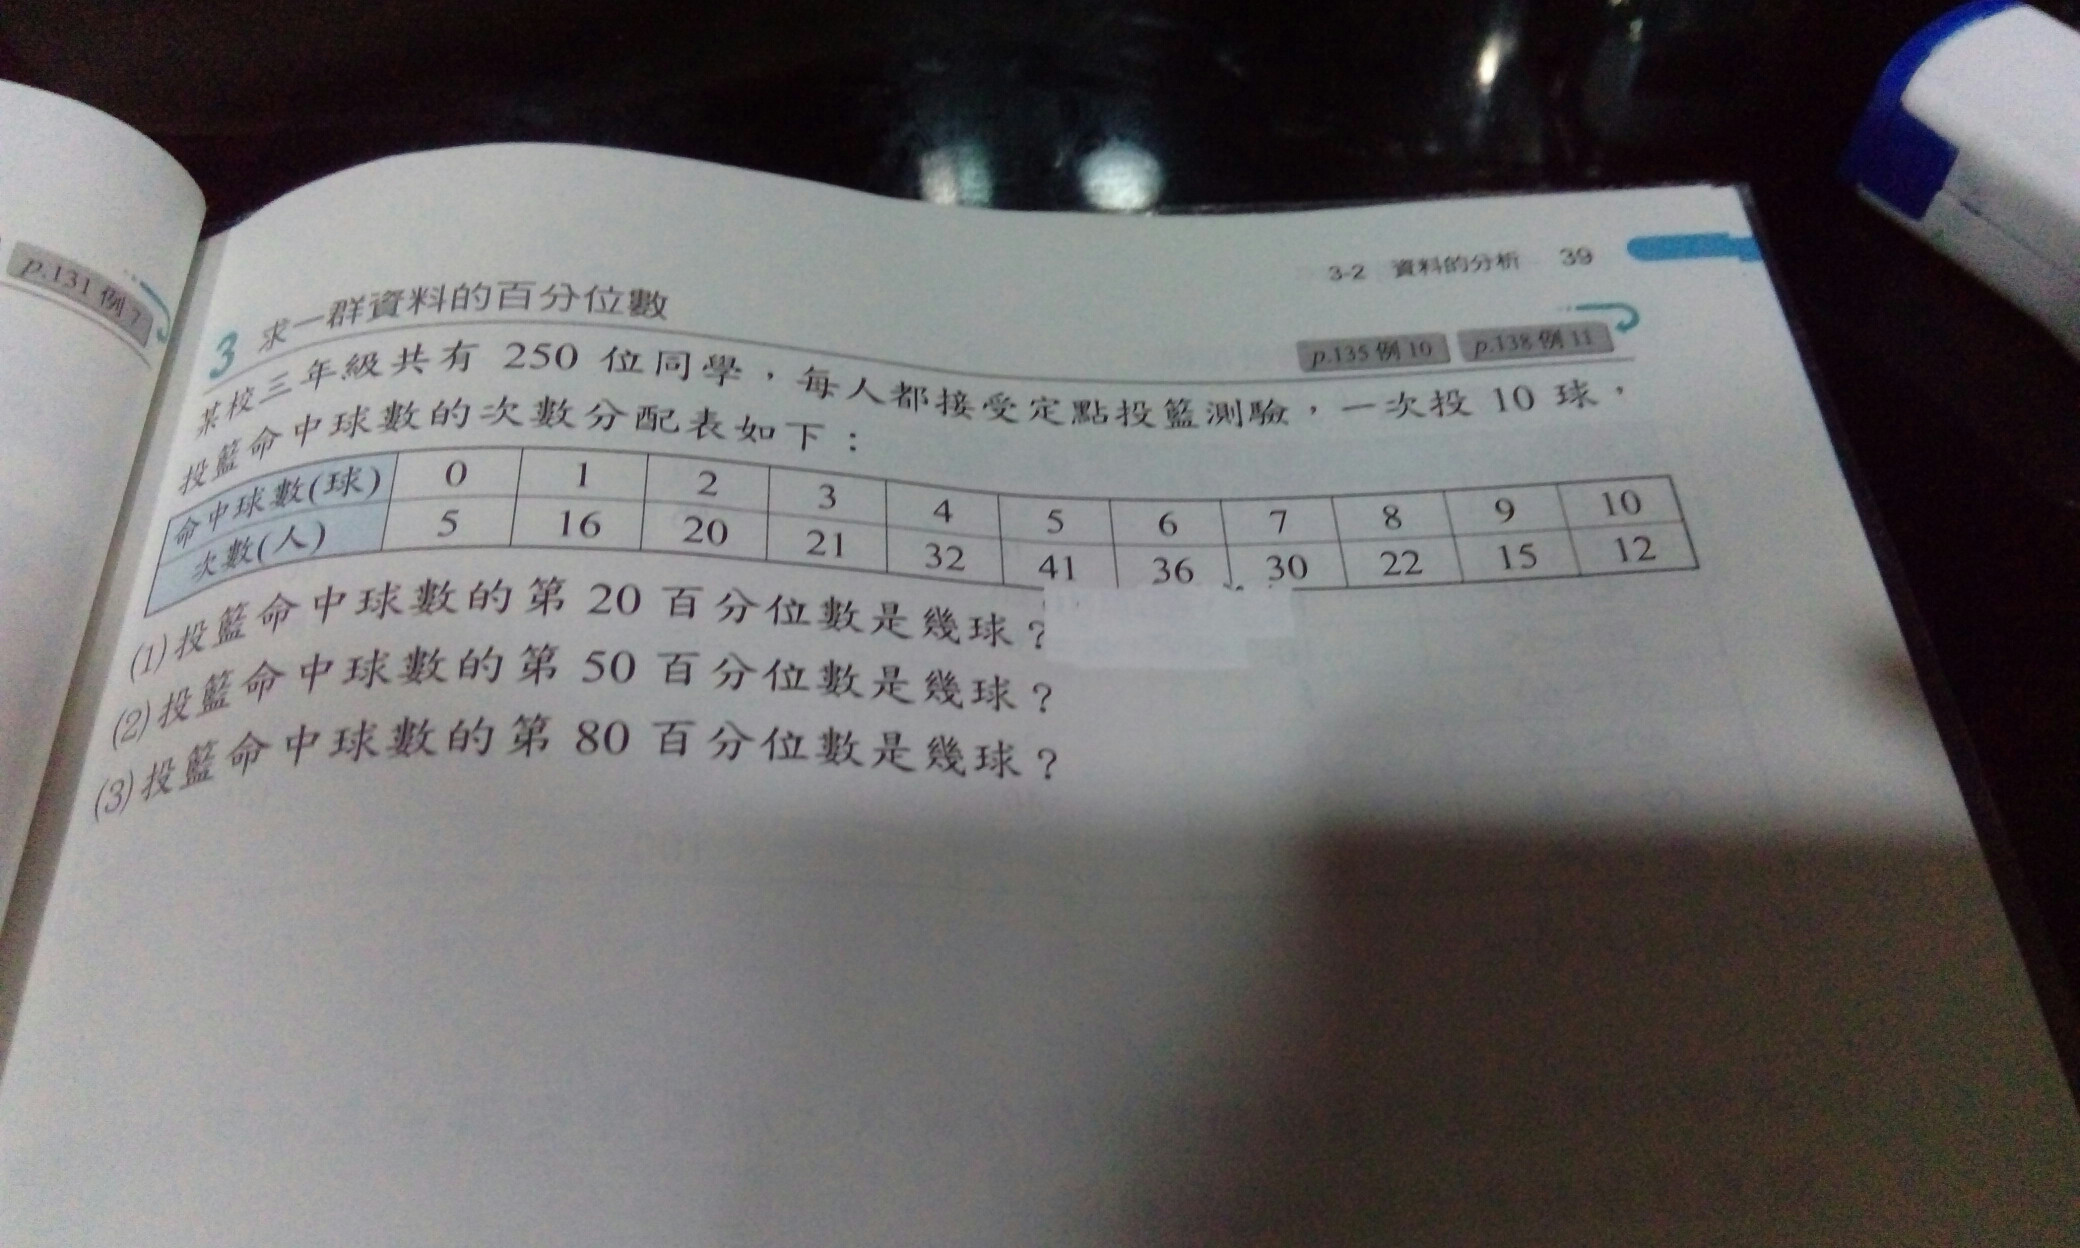 p.131 例 7
3-2 資料的分析 39
3 求一群資料的百分位數
p.135 例 10 p.138 例 11
某校三年級共有 250 位同學,每人都接受定點投籃測驗,一次投 10 球,
投籃命中球數的次數分配表如下:
命中球數(球) 0 1 2 3 4 5 6 7 8 9 10
次數(人) 5 16 20 21 32 41 36 30 22 15 12
(1)投籃命中球數的第 20 百分位數是幾球?
(2)投籃命中球數的第 50 百分位數是幾球?
(3)投籃命中球數的第 80 百分位數是幾球?